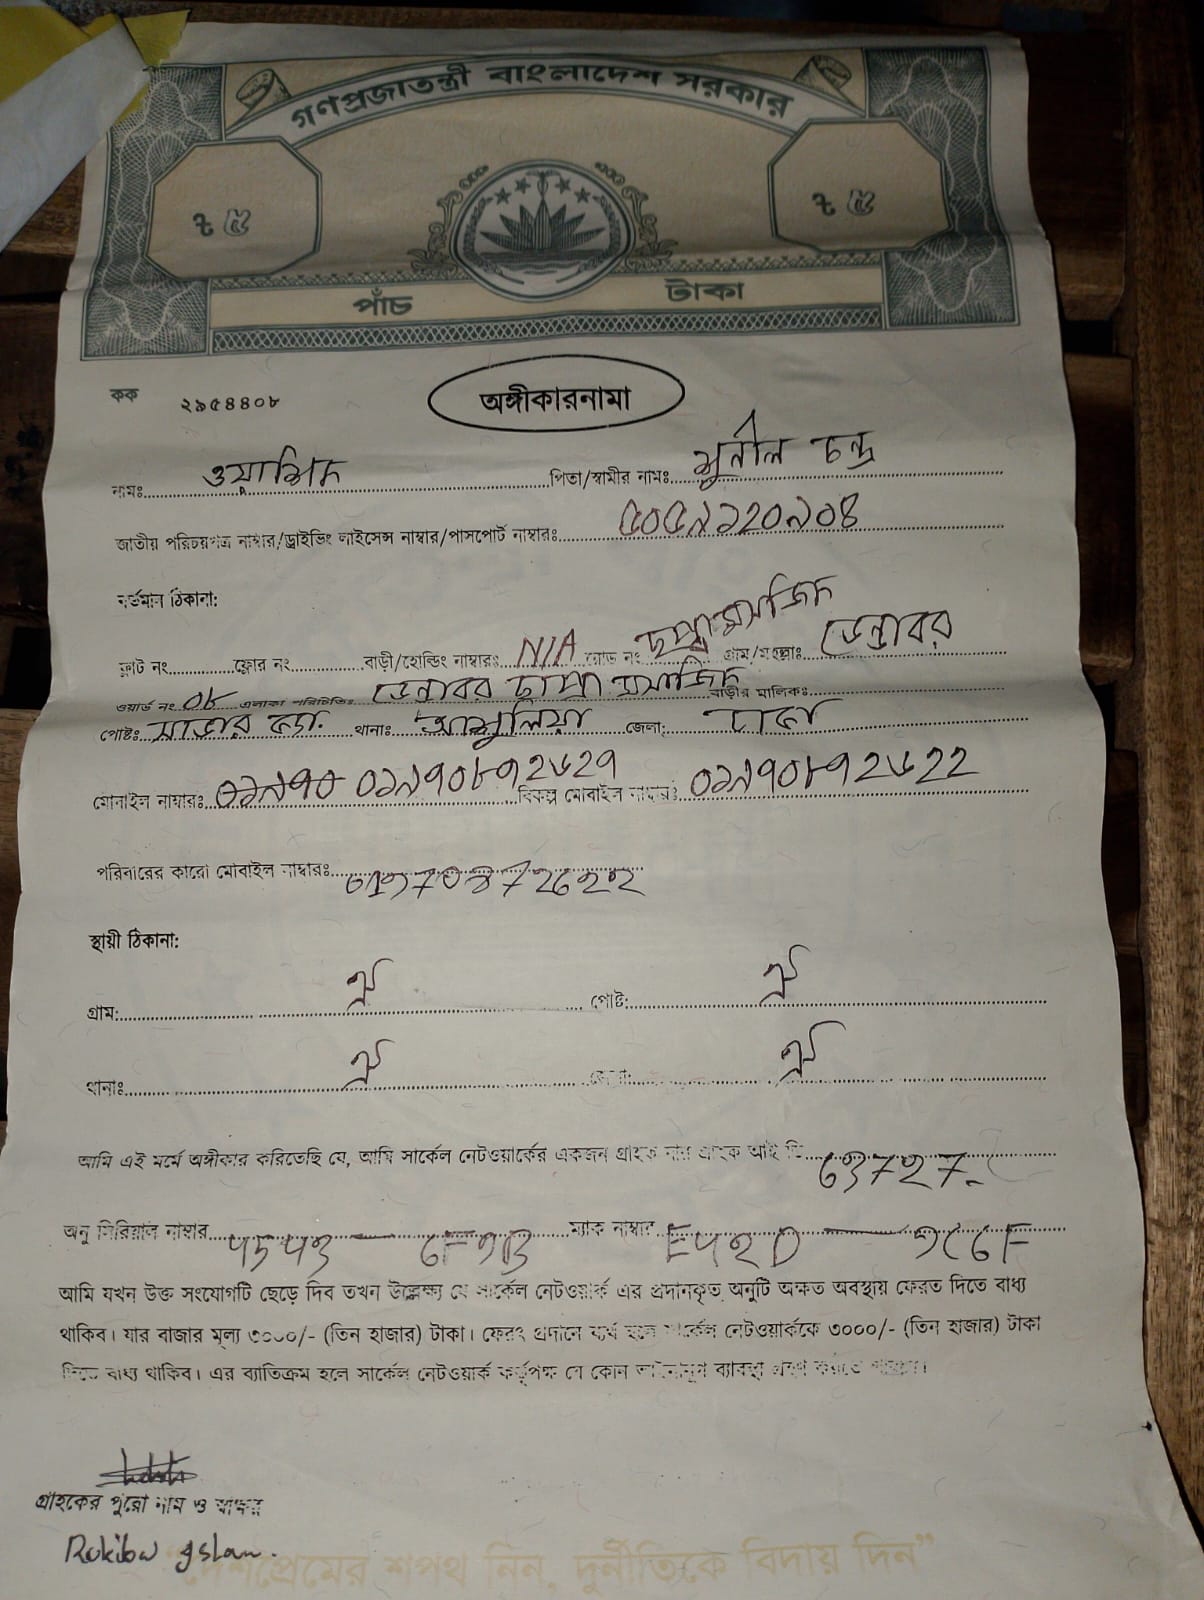 গণপ্রজাতন্ত্রী বাংলাদেশ সরকার
৳ ৫ ৳ ৫
পাঁচ টাকা
কক ২৯৫৪৪০৮ অঙ্গীকারনামা
নামঃ ওয়াশিদ পিতা/স্বামীর নামঃ সুনীল চন্দ্র
জাতীয় পরিচয়পত্র নাম্বার/ড্রাইভিং লাইসেন্স নাম্বার/পাসপোর্ট নাম্বারঃ ৫০৫৯১২০৯০৪
বর্তমান ঠিকানা:
ফ্লাট নং ফ্লোর নং বাড়ী/হোল্ডিং নাম্বারঃ N/A রোড নং মসজিদ গ্রাম/মহল্লাঃ ডেন্ডাবর
ওয়ার্ড নং ০৮ এলাকা পরিচিতিঃ ডেন্ডাবর মসজিদ বাড়ীর মালিকঃ
পোষ্টঃ সাভার থানাঃ আশুলিয়া জেলা: ঢাকা
মোবাইল নাম্বারঃ ০১৯৭০৮৭২৬২৭ বিকল্প মোবাইল নাম্বারঃ ০১৯৭০৮৭২৬২২
পরিবারের কারো মোবাইল নাম্বারঃ 01970872622
স্থায়ী ঠিকানা:
গ্রাম: ঐ পোষ্ট: ঐ
থানাঃ ঐ জেলা: ঐ
আমি এই মর্মে অঙ্গীকার করিতেছি যে, আমি সার্কেল নেটওয়ার্কের একজন গ্রাহক যার গ্রাহক আই ডি
অনু সিরিয়াল নাম্বার ম্যাক নাম্বার
আমি যখন উক্ত সংযোগটি ছেড়ে দিব তখন উল্লেক্ষ্য যে সার্কেল নেটওয়ার্ক এর প্রদানকৃত অনুটি অক্ষত অবস্থায় ফেরত দিতে বাধ্য
থাকিব। যার বাজার মূল্য ৩০০০/- (তিন হাজার) টাকা। ফেরৎ প্রদানে ব্যর্থ হলে সার্কেল নেটওয়ার্ককে ৩০০০/- (তিন হাজার) টাকা
দিতে বাধ্য থাকিব। এর ব্যাতিক্রম হলে সার্কেল নেটওয়ার্ক কর্তৃপক্ষ যে কোন আইনানুগ ব্যাবস্থা গ্রহণ করতে পারবে।
গ্রাহকের পুরো নাম ও স্বাক্ষর
"দেশপ্রেমের শপথ নিন, দুর্নীতিকে বিদায় দিন"